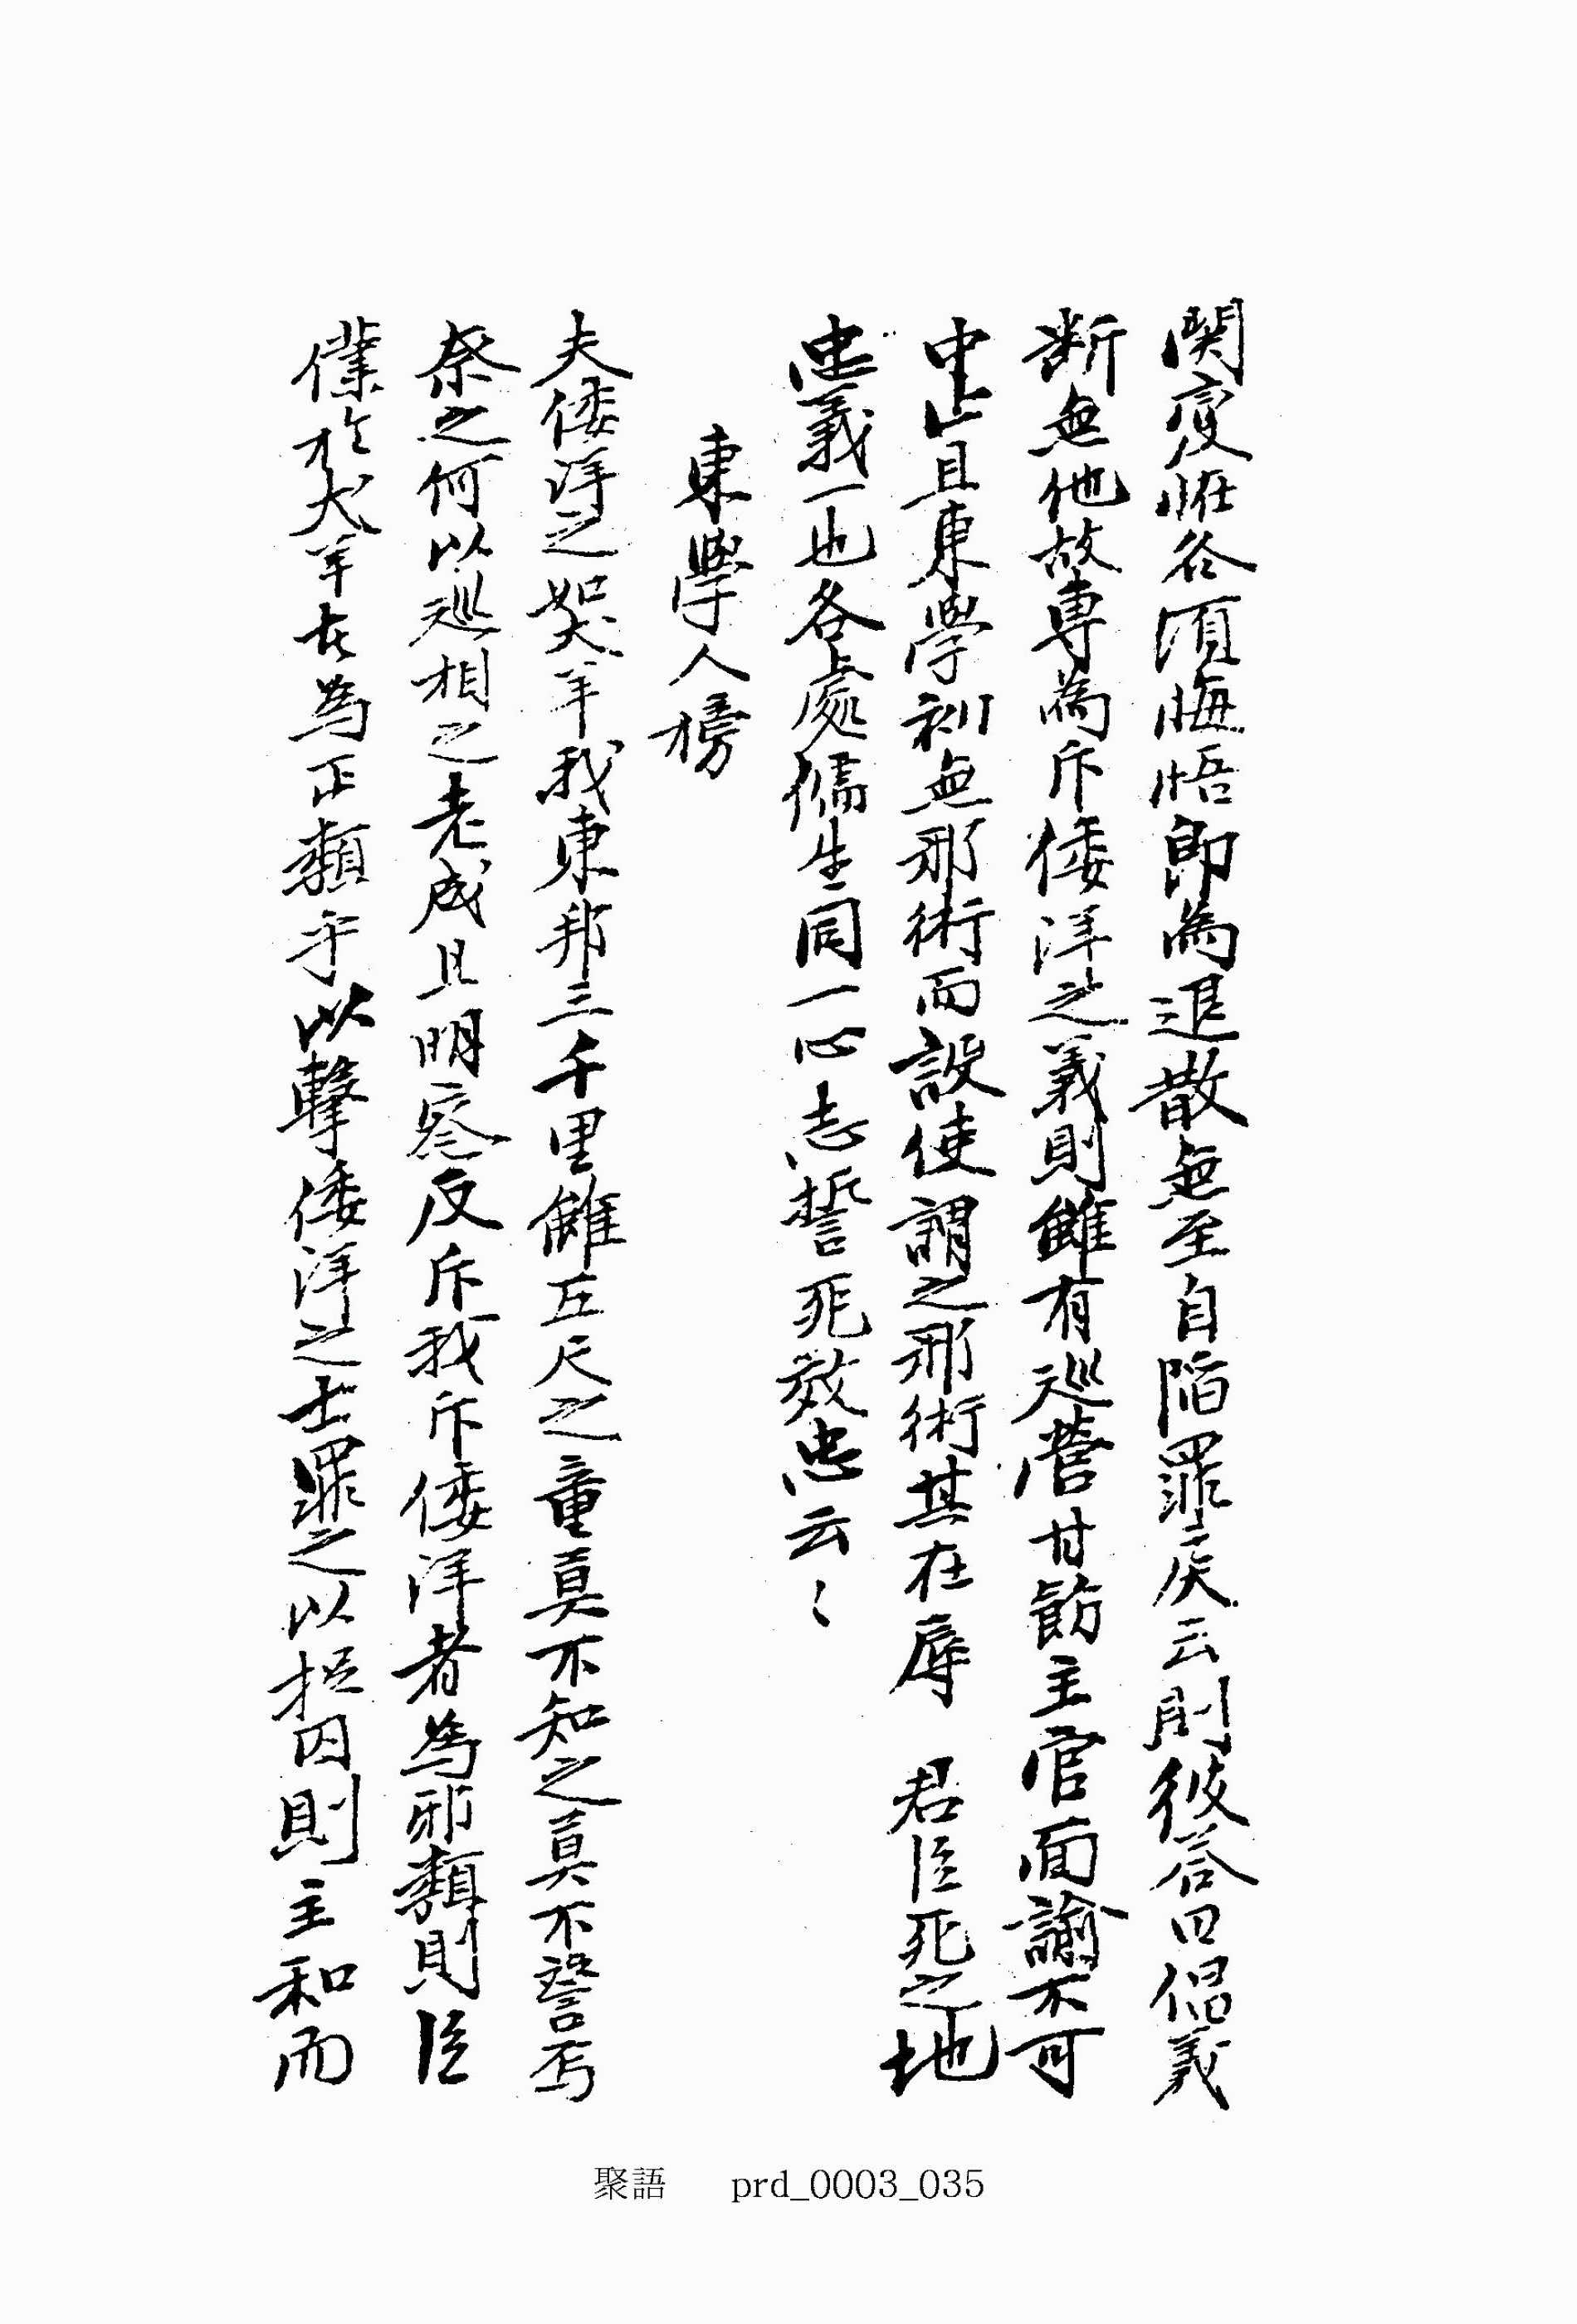 関變怪各須悔悟卽為退散無至自陷罪戾云則彼答曰倡義
斷無他故專為斥倭洋之義則雖有巡營甘飭主官面諭不可
中止且東學初無邪術而設使謂之邪術其在辱 君臣死之地
忠義一也各處儒生同一心志誓死效忠云〻
東學人榜
夫倭洋之如犬羊我東邦三千里雖五尺之童莫不知之莫不讐焉
奈之何以巡相之老成且明察反斥我斥倭洋者為邪類則臣
僕於犬羊者為正類乎以擊倭洋之士罪之以捉囚則主和而
聚語 prd_0003_035